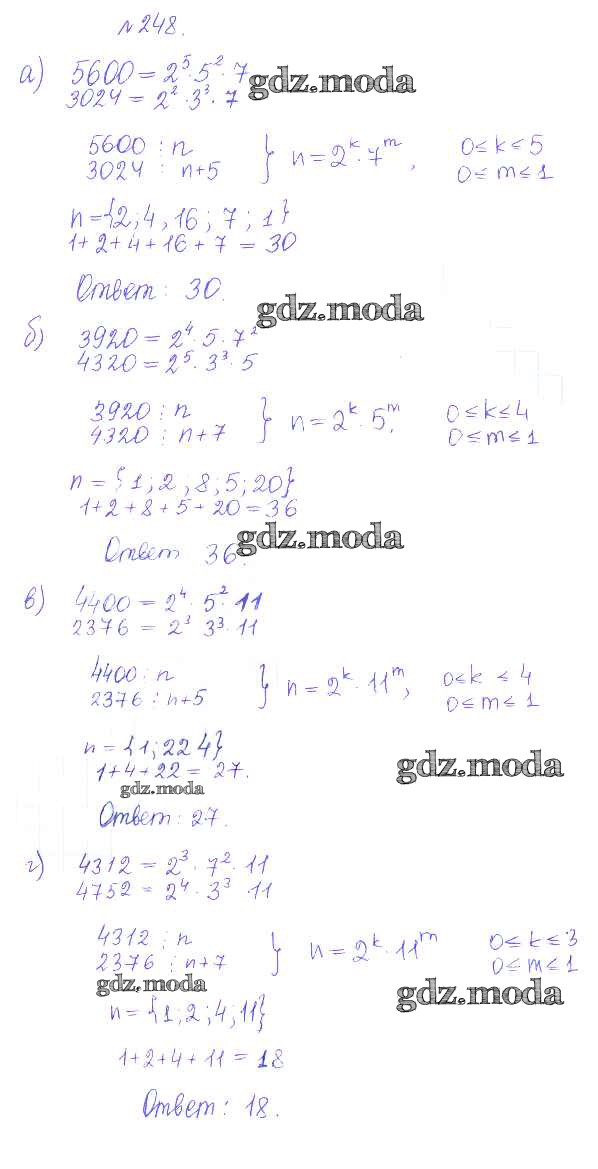 №248.
а) 5600 = 2⁵ · 5² · 7
gdz.moda
3024 = 2² · 3³ · 7
5600 ⋮ n
3024 ⋮ n+5
} n = 2ᵏ · 7ᵐ, 0 ≤ k ≤ 5
0 ≤ m ≤ 1
n = {2; 4, 16; 7; 1}
1 + 2 + 4 + 16 + 7 = 30
Ответ: 30.
gdz.moda
б) 3920 = 2⁴ · 5 · 7²
4320 = 2⁵ · 3³ · 5
3920 ⋮ n
4320 ⋮ n+7
} n = 2ᵏ · 5ᵐ, 0 ≤ k ≤ 4
0 ≤ m ≤ 1
n = {1; 2, 8; 5; 20}
1 + 2 + 8 + 5 + 20 = 36
Ответ 36.
gdz.moda
в) 4400 = 2⁴ · 5² · 11
2376 = 2³ 3³ · 11
4400 ⋮ n
2376 ⋮ n+5
} n = 2ᵏ · 11ᵐ, 0 ≤ k ≤ 4
0 ≤ m ≤ 1
n = {1; 22 4}
1 + 4 + 22 = 27.
gdz.moda
gdz.moda
Ответ: 27.
г) 4312 = 2³ · 7² · 11
4752 = 2⁴ · 3³ 11
4312 ⋮ n
2376 ⋮ n+7
} n = 2ᵏ · 11ᵐ 0 ≤ k ≤ 3
0 ≤ m ≤ 1
gdz.moda
gdz.moda
n = {1; 2; 4; 11}
1 + 2 + 4 + 11 = 18
Ответ: 18.